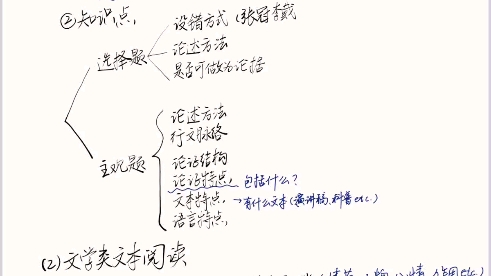 ②知识点
选择题
设错方式（张冠李戴
论述方法
是否可做为论据
主观题
论述方法
行文脉络
论证结构
论证特点， 包括什么？
文本特点. →有什么文本（演讲稿、科普etc.）
语言特点,
(2)文学类文本阅读